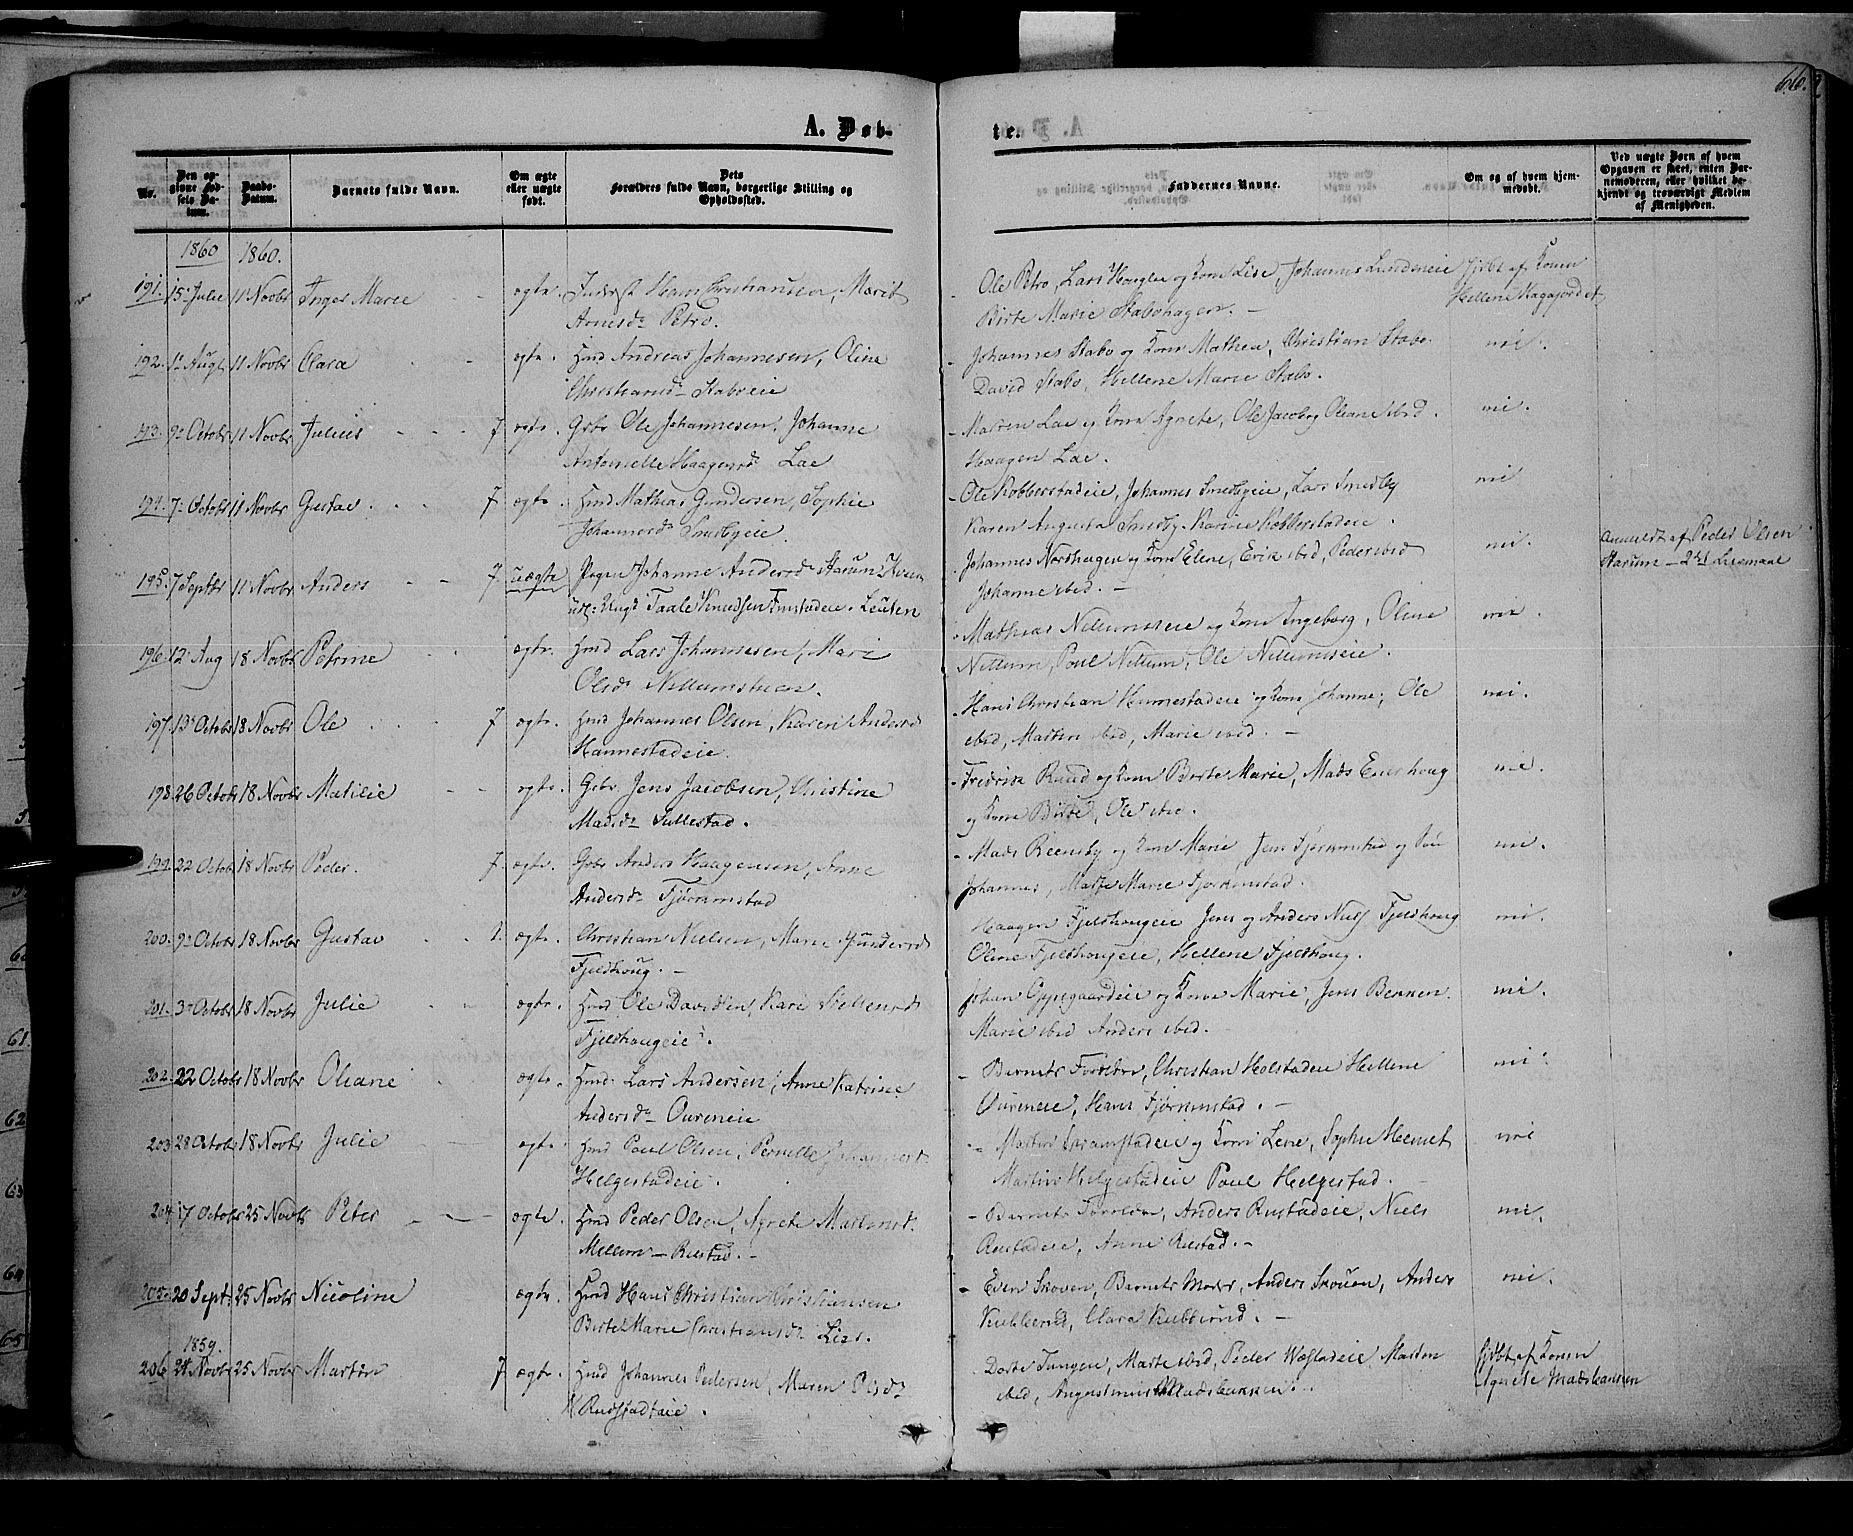 66.
A. Døb-
te.
No.
Den opgivne Fødsels Datum.
Daabs-Datum.
Barnets fulde Navn.
Om ægte eller uægte født.
Dets Forældres fulde Navn, borgerlige Stilling og Opholdssted.
Faddernes Navne.
Om og af hvem hjemmedøbt.
Ved uægte Børn af hvem Opgaven er skeet, enten Barnemoderen, eller hvilket bekjendt og troværdigt Medlem af Menigheden.
1860 1860.
191. 15 Julie 11 Novbr Inger Marie - - ægte. Inderst Hans Christiansen, Marit
Arnesdr Petro.
Ole Petro, Lars Hauglie og Kone Lise, Johannes Lundeneie
Birte Marie Stabohagen. -
Hjdbt af Konen
Hellene Hagajordet
192. 1 Augt 11 Novbr Clara - - ægte. Hmd Andreas Johannesen, Oline
Christiansdr Staboeie
- Johannes Stabo og Kone Mathea, Christian Stabo.
David Stabo, Hellene Marie Stabo.
nei.
193. 9 Octobr 11 Novbr Julius - - 7 ægte. Gbr Ole Johannesen, Johanne
Antonette Haagensd Lae
- Marten Lae og Kone Agnete, Ole Jacob og Oleane ibid.
Haagen Lae.
nei.
194. 7 Octobr 11 Novbr Gustav - - 7 ægte. Hmd Mathias Gundersen, Sophie
Johannesdr Smedbyeie.
- Ole Kobberstadeie, Johannes Smedbyeie, Lars Smedby
Karen Augusta Smedby. Karine Kobberstadeie.
nei
195. 7 Septbr 11 Novbr Anders - - 7 uægte Pigen Johanne Andersdr Starum
Ungk Taale Knudsen Imstadeie. Leuten
Johannes Nordhagen og Kone Elene, Erik ibid, Peder ibid
Johanne ibid. -
nei.
Anmeldt af Peder Olsen
Starum - 2det Leiemaal
196. 12 Aug 18 Novbr Petrine - - ægte. Hmd Lars Johannesen, Mari
Olsdr Nettumstuen.
Mathias Nettumseie og Kone Ingeborg, Oline
Nettum, Poul Nettum, Ole Nettumseie.
nei.
197. 13 Octobr 18 Novbr Ole - - 7 ægte. Hmd Johannes Olsen, Karen Andersd
Hannestadeie.
- Hans Christian Hannestadeie og Kone Johanne, Ole
ibid, Martin ibid, Marie ibid. -
nei.
198. 26 Octobr 18 Novbr Matilie - - ægte. Gbr. Jens Jacobsen, Christine
Madsdr Sullestad.
- Fredrik Ruud og Kone Berte Marie, Mads Enerhoug
og Kone Birte, Ole ibid.
nei.
199. 22 Octobr 18 Novbr Peder. 7. ægte. Gbr Anders Haagensen, Anne
Andersdr Fjørkenstad
- Mads Reensby og Kone Marie, Jens Fjørkenstad og
Johannes, Marie Fjørkenstad.
nei.
200. 9 Octobr 18 Novbr Gustav - - 1. ægte. Christian Nielsen, Marie Gundersd
Fjeldhoug. -
Haagen Fjeldhougeie Jens og Anders Fjeldhoug
Oline Fjeldhougeie, Hellene Fjeldhoug.
nei.
201. 3 Octobr 18 Novbr Julie - - ægte. Hmd Ole Davidsen, Kari
Fjeldhougeie.
Johan Oppegaardeie og Kone Marie, Jens Berken.
Marie ibid Anders ibid.
nei.
202. 22 Octobr 18 Novbr Oliane - ægte. Hmd. Lars Andersen, Anne Katrine
Andersdr Oureneie
- Barnets Forældre, Christian Holstadeie Hellene
Oureneie, Hans Fjørkenstad. -
nei.
203 28 Octobr 18 Novbr Julie - - ægte. Hmd Poul Olsen, Pernille Johannesd.
Helgestadeie.
- Martin Kramstadeie og Kone Lene, Sophie
Martin Helgestadeie Poul Helgestad.
nei
204 17 Octobr 25 Novbr Peter - - ægte. Hmd Peder Olsen, Agnete Martinsd.
Mellem-Rustad. -
- Barnets Forældre, Anders Rustadeie, Niels
Rustadeie, Anne Rustad. -
nei.
205. 20 Sept. 25 Novbr Nicoline ægte Hmd Hans Christian Christiansen
Birte Marie Christiansdr Lier.
- Even Skoven, Barnets Moder, Anders Skouen, Anders
Kubberud, Clara Kubberud. -
nei.
1859.
206 24 Novbr 25 Novbr Martin 7 ægte. Hmd Johannes Pedersen, Maren Olsdr
Rudstadeie.
- Dorte Tangen, Marte ibid, Peder Westadeie Marten
ibid, Augustinus Madsbakken. -
Hjdbt. af Konen
Agnete Madsbakken